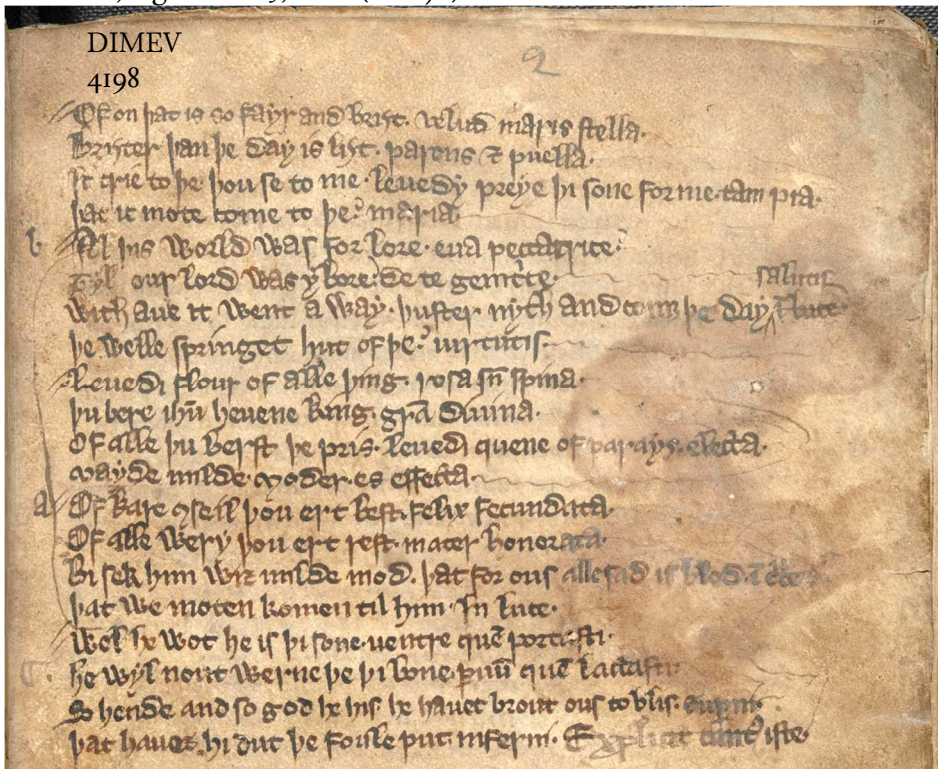 DIMEV
4198
2
Of on þat is so fayr and briȝt. velud maris stella.
Briȝter þan þe day is liȝt. parens ⁊ puella.
Ic crie to þe þou se to me. levedy preye þi sone for me. tam pia.
þat ic mote come to þe. maria.
b Al þis world was for lore. eva peccatrice.
Tyl our lord was y bore. de te genitrice.
With ave it went a way. þuster nyth and comȝ þe day salutis
þe welle springet hut of þe. uirtutis.
Levedi flour of alle þing. rosa sn̄ spina.
þu bere ihū hevene king. grā divina.
Of alle þu berst þe pris. levedi quene of parays. electa.
mayde milde. moder. es effecta.
a Of kare ɔseil þou ert best. felix fecundata.
Of alle wery þou ert rest. mater honorata.
Bi sek him wiȝ milde mod. þat for ous alle sad is blod. ī cͨe
þat we moten komen til him. In luce.
Wel he wot he is þi sone. ventre quē portasti.
he wyl nout werne þe þi bone. p̄uū quē lactasti.
So hende and so god he his he havet brout ous to blis. superni
þat haveȝ hi dut þe foule put inferni. Explicit cant' iste.